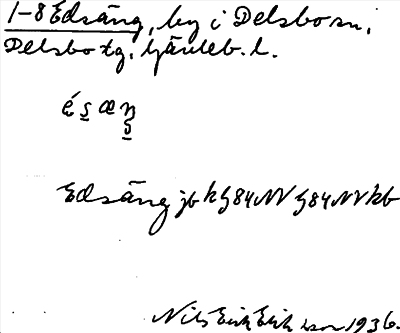 1-8 Edsäng, by i Delsbo sn,
Delsbo tg. Gävleb. l.
é s æ ŋ
Edsäng jb
Nils Erik Eriksson 1936.